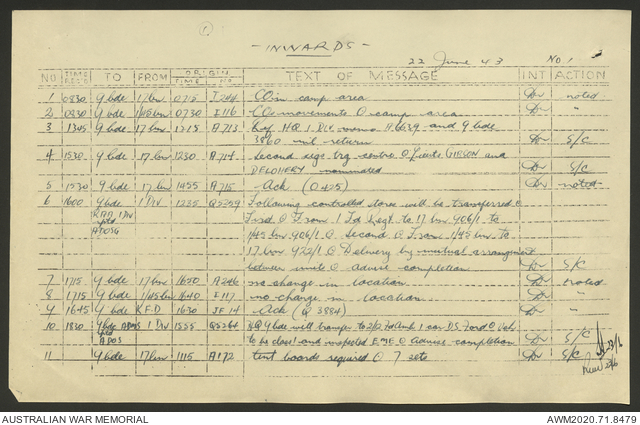 - INWARDS -
22 June 43 No 1
NO TIME REC'D TO FROM ORIGIN TIME NO. TEXT OF MESSAGE INT ACTION
1 0830 9 bde 17 bn 0715 I 244 COs in camp area noted
2 0830 9 bde 1/45 bn 0730 I 116 COs movements @ camp area "
3 1345 9 bde 17 bn 1215 A713 HQ 1 Div and 9 bde
3860 nil return S/C
4 1530 9 bde 17 bn 1230 A714 Second trg centre @ Lieuts GIBSON and
nominated S/C
5 1530 9 bde 17 bn 1455 A715 Ack (0425) noted
6 1600 9 bde 1 Div 1235 Q5259 Following controlled store will be transferred @
First @ From 1 Fd Regt to 17 bn 906/1 to
1/45 bn 906/1 @ Second @ From 1/45 bn to
17 bn 922/1 @ Delivery by mutual arrangement
between units @ advise completion S/C
7 1715 9 bde 17 bn 1650 A246 no change in location noted
8 1715 9 bde 1/45 bn 1640 I 117 no change in location "
9 1645 9 bde 1630 Ack (Q 3884) "
10 1830 9 bde ADOS 1 Div 1555 Q5264 HQ 9 bde will transfer to 2/2 Fd Amb 1 car D.S. Ford @ Veh
ADOS to be class 1 and inspected EME @ Advise completion S/C
11 9 bde 17 bn 1115 A172 tent boards required @ 7 sets S/C
AUSTRALIAN WAR MEMORIAL AWM2020.71.8479